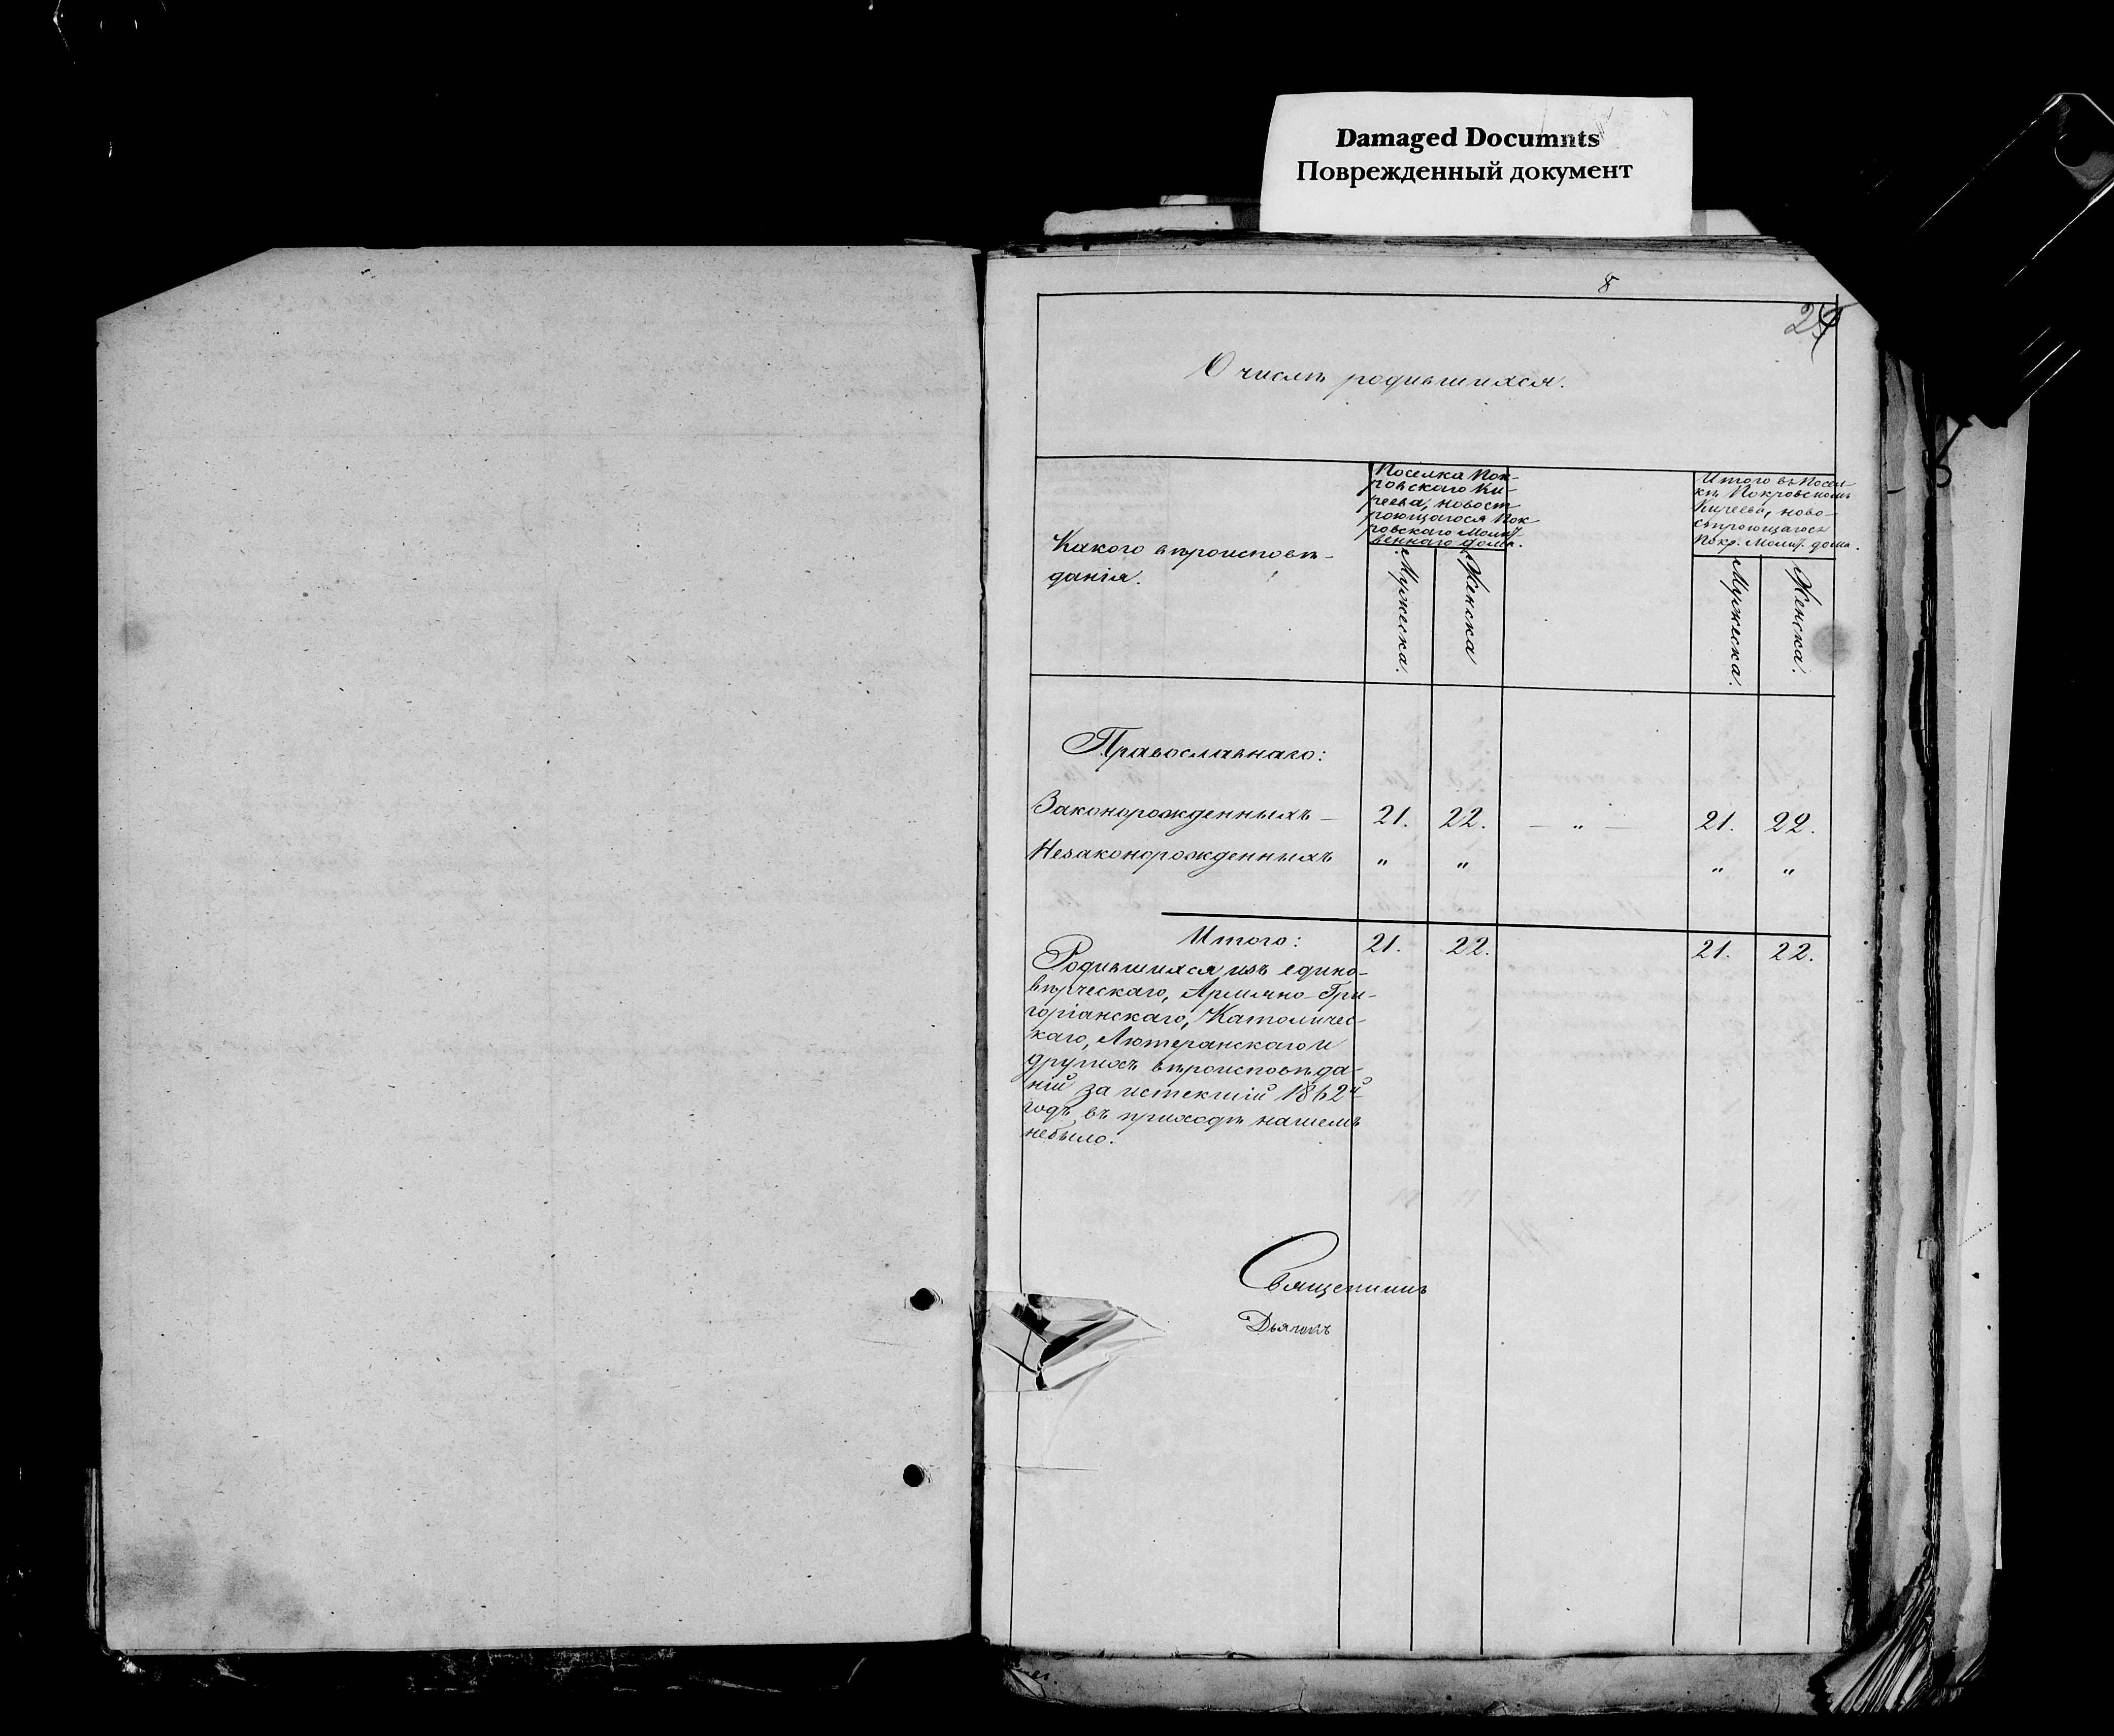 Damaged Documnts
Поврежденный документ
8
О числѣ родившихся.
Какого вѣроисповѣ-
данія.
Поселка Пок-
ровскаго Ки-
реева, новост
роющагося Пок
ровскаго Молит
веннаго дома.
Мужеска.
Женска
Итого въ Посел-
кѣ Покровскомъ
Киреева, ново-
строющагося
Покр. Молит. дома.
Мужеска.
Женска.
Православнаго:
Законорожденныхъ — 21. 22. — " — 21. 22.
Незаконорожденныхъ " " " "
Итого: 21. 22. 21. 22.
Родившихся изъ едино-
вѣрческаго, Армяно-Гри-
горіанскаго, Католичес-
каго, Лютеранскаго и
другихъ вѣроисповѣда-
ній за истекшій 1862й
годъ въ приходѣ нашемъ
небыло.
Священникъ
Дьячокъ